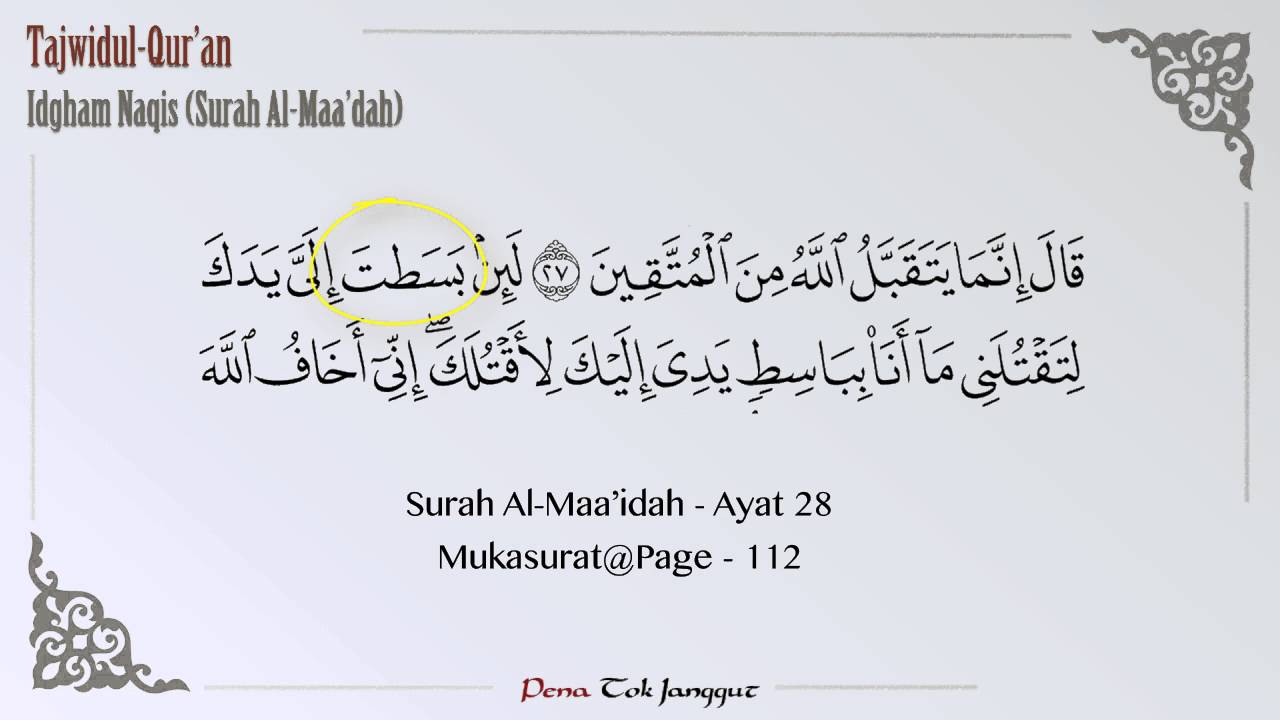 Tajwidul-Qur'an
Idgham Naqis (Surah Al-Maa'dah)
قَالَ إِنَّمَا يَتَقَبَّلُ ٱللَّهُ مِنَ ٱلْمُتَّقِينَ ٢٧ لَئِنۢ بَسَطتَ إِلَىَّ يَدَكَ
لِتَقْتُلَنِى مَآ أَنَا۠ بِبَاسِطٍۢ يَدِىَ إِلَيْكَ لِأَقْتُلَكَ ۖ إِنِّىٓ أَخَافُ ٱللَّهَ
Surah Al-Maa'idah - Ayat 28
Mukasurat@Page - 112
Pena Tok Janggut